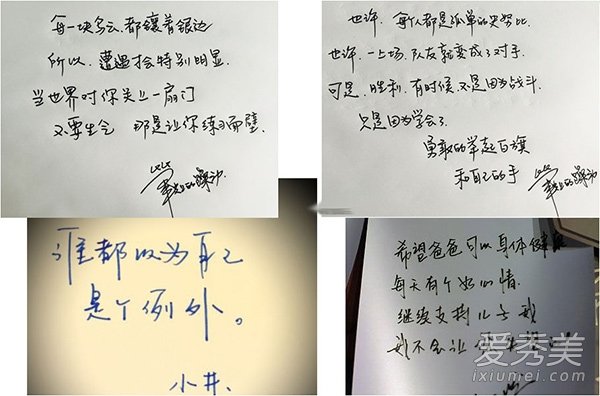 每一块乌云,都镶着银边
所以,遭遇才会特别明显
当世界对你关上一扇门
不要生气 那是让你练习面壁
也许,每个人都是孤单的史努比
也许,一上场,队友就变成了对手
可是,胜利,有时候,不是因为战斗
只是因为学会了
勇敢的举起白旗
和自己的手
谁都以为自己
是个例外。
小井.
希望爸爸可以身体健康
每天有个好心情
继续支持儿子我
我不会让
爱秀美
ixiumei.com